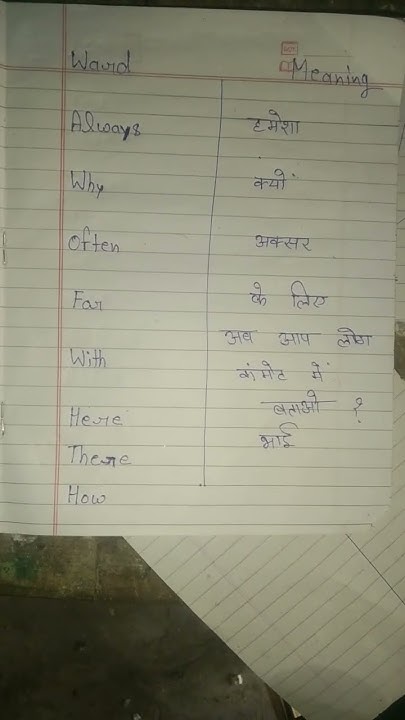 Word Meaning
Always हमेशा
Why क्यों
Often अक्सर
For के लिए
अब आप लोग
With कमेंट में
बताओ ?
Here भाई
There
How